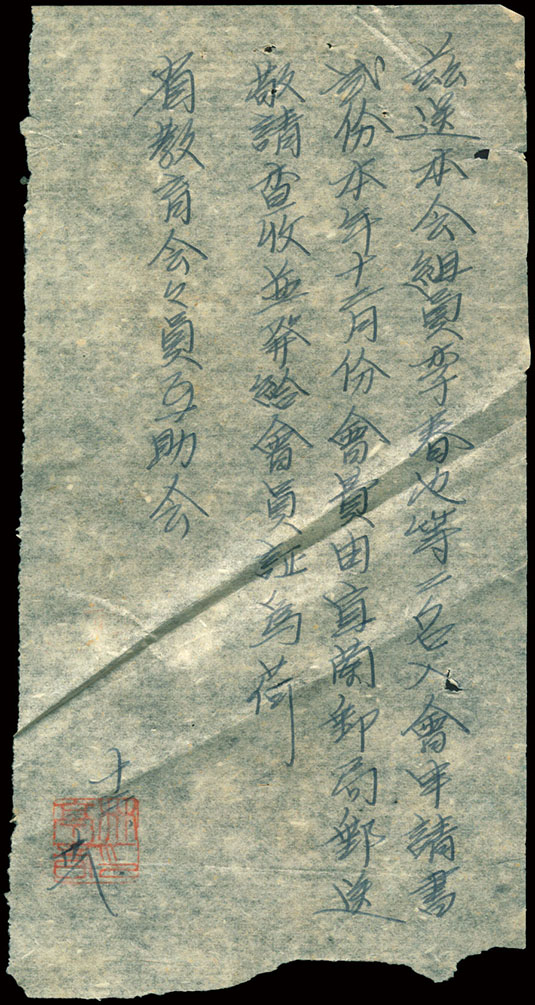 茲送本会組員李春池等二名入會申請書
弍份本年十二月份會費由宜蘭郵局郵送
敬請查收並發給會員証為荷
省教育会々員互助会
十